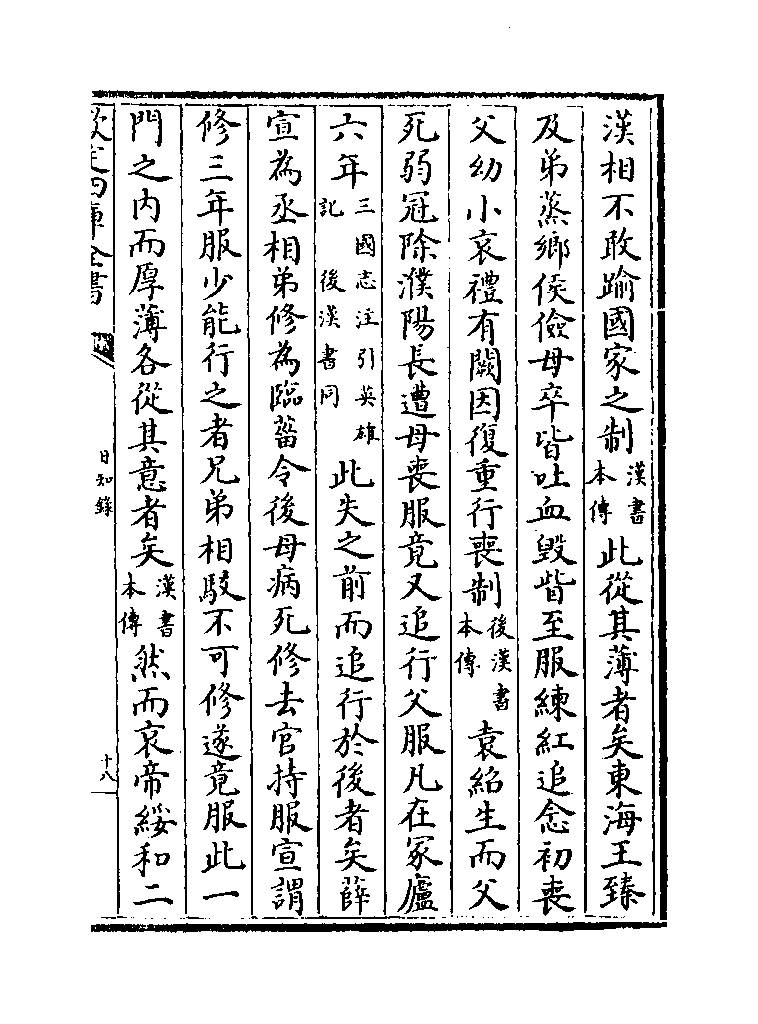 漢相不敢踰國家之制漢書本傳此從其薄者矣東海王臻
及弟蒸鄉侯儉母卒皆吐血毀眥至服練紅追念初喪
父幼小哀禮有闕因復重行喪制後漢書本傳袁紹生而父
死弱冠除濮陽長遭母喪服竟又追行父服凡在冢廬
六年三國志注引英雄記後漢書同此失之前而追行於後者矣薛
宣為丞相弟修為臨菑令後母病死修去官持服宣謂
修三年服少能行之者兄弟相駮不可修遂竟服此一
門之内而厚薄各從其意者矣漢書本傳然而哀帝綏和二
欽定四庫全書
日知錄
十八